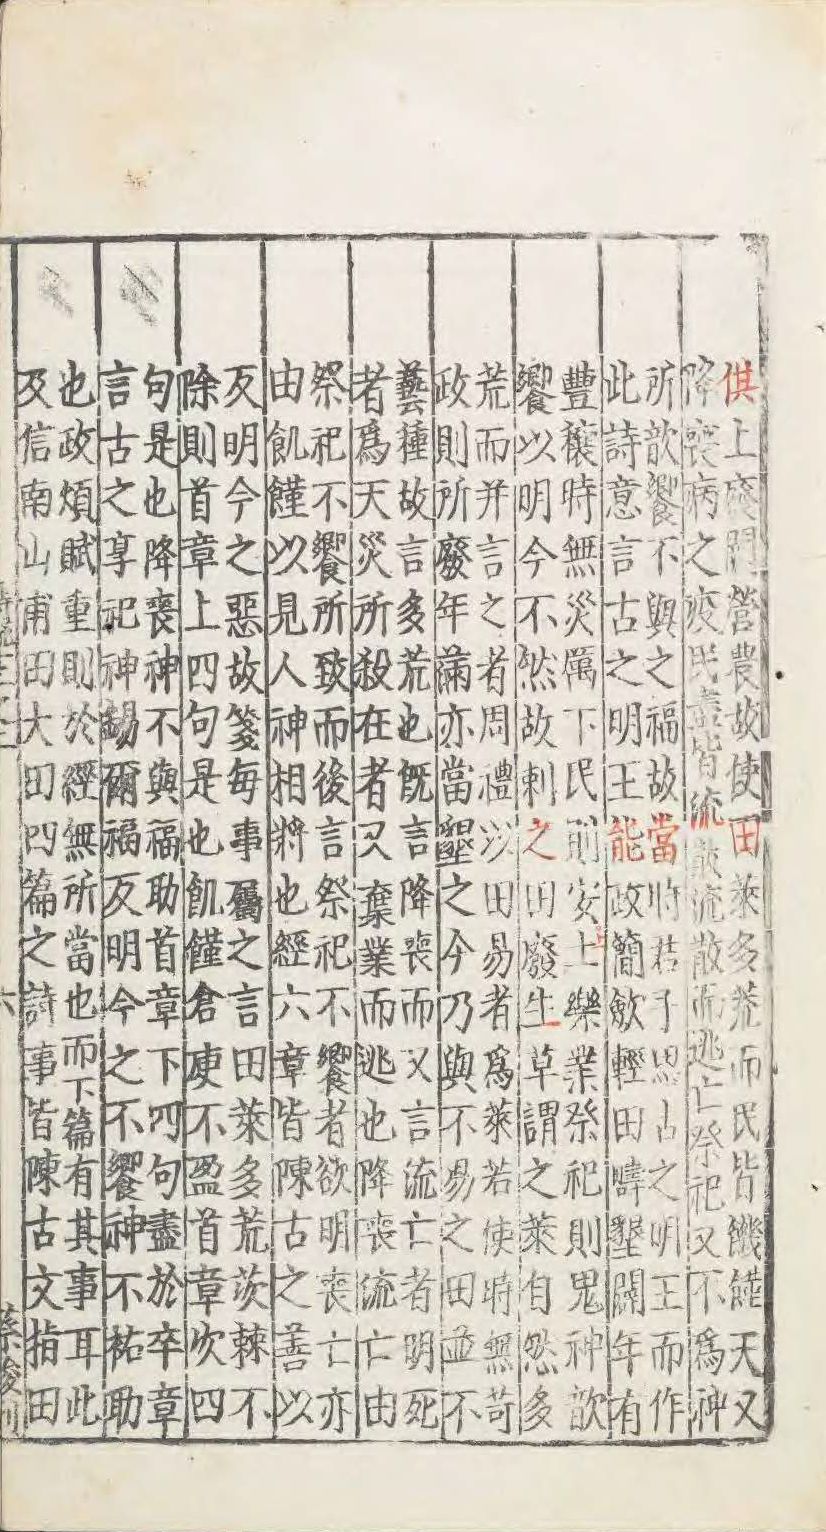 供上廢闕營農故使田萊多荒而民皆饑饉天又
降喪病之疫民盡皆流散流散而逃亡祭祀又不爲神
所歆饗不與之福故當時君子思古之明王而作
此詩意言古之明王能政簡斂輕田疇墾闢年有
豐穰時無災厲下民則安土樂業祭祀則鬼神歆
饗以明今不然故刺之田廢生草謂之萊自然多
荒而并言之者周禮以田易者爲萊若使時無苛
政則所廢年滿亦當墾之今乃與不易之田並不
藝種故言多荒也旣言降喪而又言流亡者明死
者爲天災所殺在者又棄業而逃也降喪流亡由
祭祀不饗所致而後言祭祀不饗者欲明喪亡亦
由飢饉以見人神相將也經六章皆陳古之善以
反明今之惡故箋每事屬之言田萊多荒茨棘不
除則首章上四句是也飢饉倉庾不盈首章次四
句是也降喪神不與福助首章下四句盡於卒章
言古之享祀神錫爾福反明今之不饗神不祐助
也政煩賦重則於經無所當也而下篇有其事耳此
及信南山甫田大田四篇之詩事皆陳古文指田
六